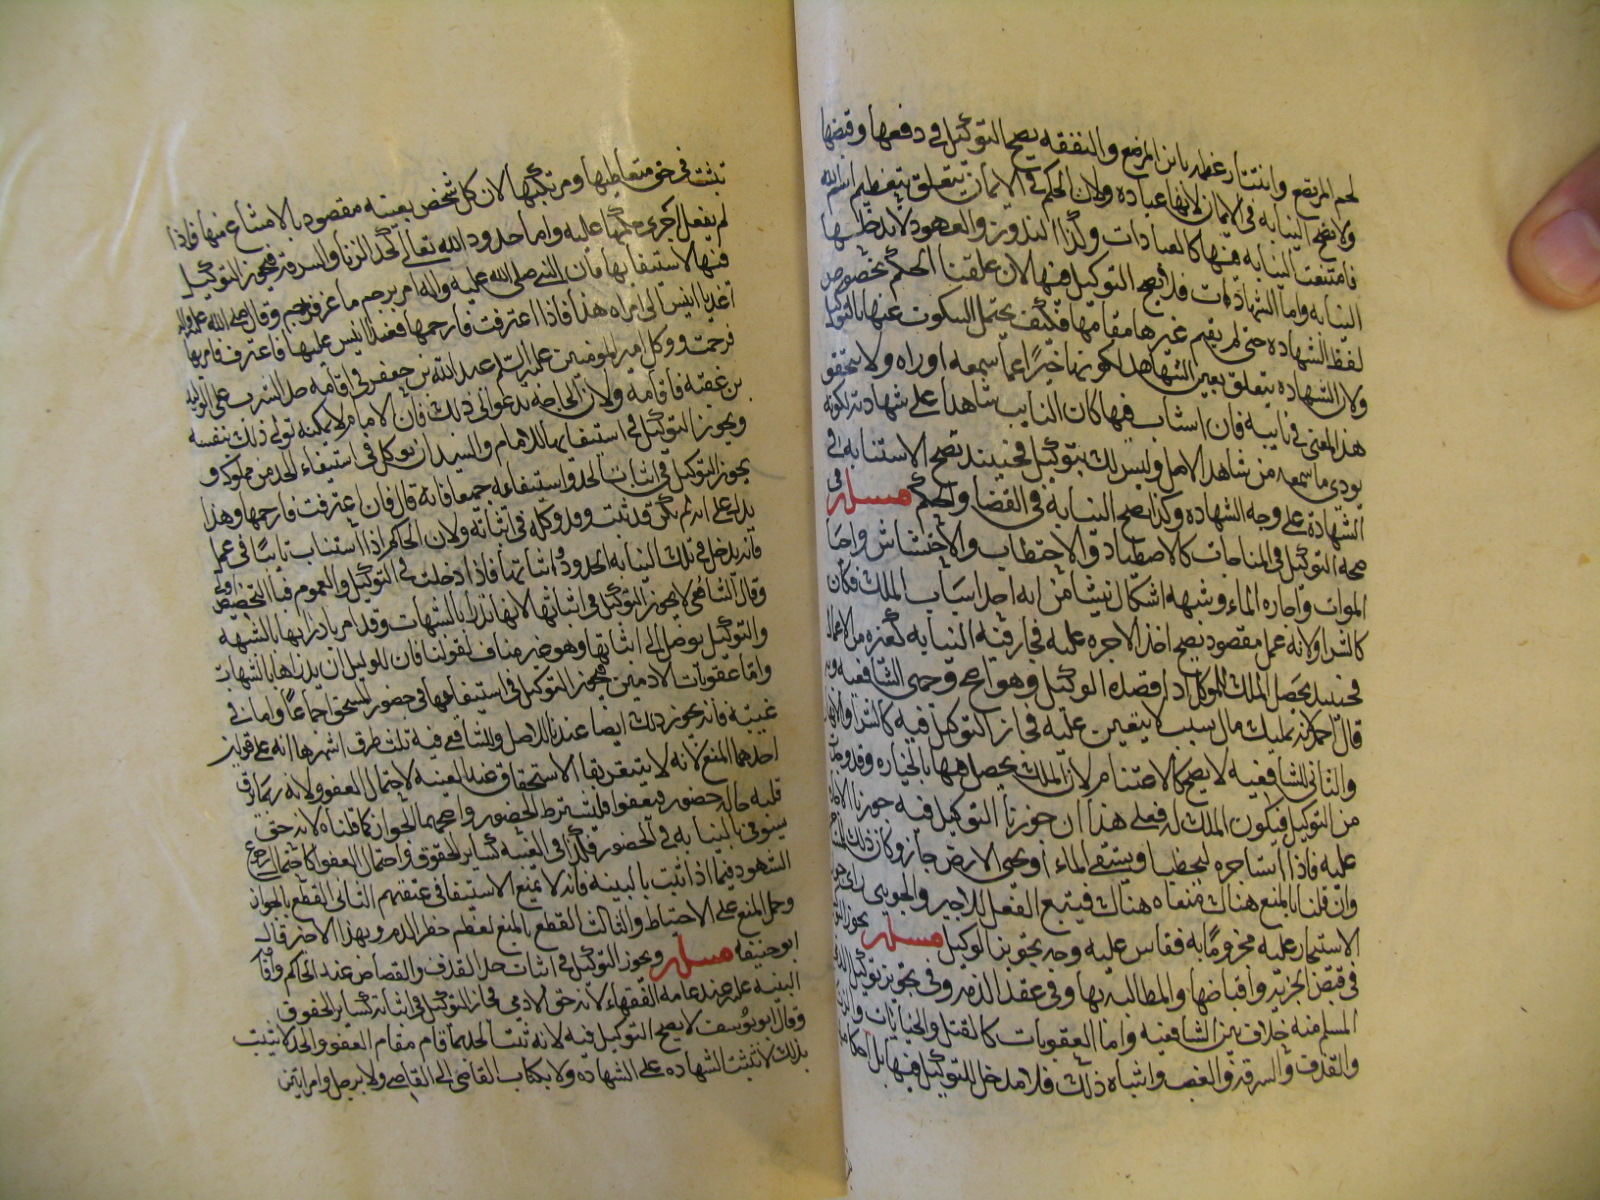 لحم المرتضع وانتشار عظمه بلبن المرضع والنفقه يصح التوكيل فى دفعها وقبضها
ولا يصح النيابه فى الايمان لانها عباده ولان الحكم فى الايمان يتعلق بتعظيم اسم الله
فامتنعت النيابه فيها كالعبادات وكذا النذور والعهود لا تدخلها
النيابه واما الشهادات فلا يصح التوكيل فيها لان علقنا الحكم بخصوص
لفظ الشهاده حتى لم يقم غيرها مقامها فكيف يحتمل السكوت عنها بالتوكيل
ولان الشهاده يتعلق بعين الشاهد لكونها خبرًا عما سمعه او راه ولا يتحقق
هذا المعنى فى نايبه فان استناب فيها كان النايب شاهدا على شهادته لكونه
يودى ما سمعه من شاهد الاصل وليس ذلك بتوكيل فحينئذ تصح الاستنابه فى
الشهادة على وجه الشهاده وكذا يصح النيابه فى القضا والحكم مسله فى
صحه التوكيل فى المباحات كالاصطياد والاحتطاب والاحتشاش واحيا
الموات واحازه الماء وشبهه اشكال ينشا من انه احد اسباب الملك فكان
كالشرا ولانه عمل مقصود يصح اخذ الاجره عليه فجاز فيه النيابه كغيره من الاعمال
فحينئذ يحصل الملك للموكل اذا قصده الوكيل وهو اصح وجهى الشافعيه وبه
قال احمد لانه تمليك مال بسبب لا يتعين عليه فجاز التوكيل فيه كالشرا والاتهاب
والثانى للشافعيه لا يصح كالاغتنام لان الملك يحصل فيها بالحيازه وقد وجدت
من التوكيل فيكون الملك له فعلى هذا ان جوزنا التوكيل فيه جوزنا الاجاره
عليه فاذا استاجره ليحطب او يستقى الماء او يحيى الارض جاز وكان ذلك للمستاجر
وان قلنا بالمنع هناك منعناه هناك فيتبع الفعل للاجير والجوينى راى جواز
الاستيجار عليه مجزومًا به فقاس عليه وجه تجويز الوكيل مسله يجوز التوكيل
فى قبض الجزيه واقباضها والمطالبه بها وفى عقد الذمه وفى تجويز توكيل الذمى
المسلم فيه خلاف بين الشافعيه واما العقوبات كالقتل والجنايات والزنا
والقذف والسرقه والغصب واشباه ذلك فلا مدخل للتوكيل فيها بل احكامها
تثبت فى حق متعاطيها ومرتكبها لان كل شخص بعينه مقصود بالامتناع عنها فاذا
لم يفعل اجرى حكمها عليه واما حدود الله تعالى كحد الزنا والسرقه فيجوز التوكيل
فيها لاستيفايها فان النبى صلى الله عليه واله امر برجم ماعز فرجم وقال صلى الله عليه واله
اغد يا انيس الى امراه هذا فاذا اعترفت فارجمها فغدا انيس عليها فاعترف فامر بها
فرجمت ووكل امير المومنين عليه السلم عبد الله بن جعفر فى اقامه حد الشرب على الوليد
بن عقبه فاقامه ولان الحاجه تدعو الى ذلك فان الامام لا يمكنه تولى ذلك بنفسه
ويجوز التوكيل فى استيفايها للامام والسيد ان يوكل فى استيفاء الحد من مملوكه و
يجوز التوكيل فى اثبات الحد واستيفاءه جميعا فانه قال فان اعترفت فارجمها وهذا
يدل على انه لم يكن قد ثبت وقد وكله فى اثباته ولان الحاكم اذا استناب نايبًا فى عمل
فانه يدخل فى تلك النيابه الحدود اثباتها فاذا دخلت فى التوكيل والعموم فبالتخصيص اولى
وقال الشافعى لا يجوز التوكيل فى اثباتها لانها تدرا بالشبهات وقد امر بادرايها بالشبهه
والتوكيل يوصل الى اثباتها وهو غير مناف لقولنا فان للوكيل ان يدراها بالشبهات
واما عقوبات الادميين فيجوز التوكيل فى استيفايها فى حضور المستحق اجماعًا واما فى
غيبته فانه يجوز ذلك ايضا عندنا للاصل وللشافعى فيه ثلث طرق اشهرها انه على قولين
احدهما المنع لانه لا يتيقن بقا الاستحقاق عند الغيبه لاحتمال العفو ولانه ربما رق
قلبه حاله حضوره فيعفوا فليشترط الحضور واصحهما الجواز كما قلناه لانه حق
يستوفى بالنيابه فى الحضور فكذا فى الغيبه كساير الحقوق واحتمال العفو كاحتمال رجوع
الشهود فيما اذا ثبت بالبينه فانه لا يمنع الاستيفا فى غيبتهم الثانى القطع بالجواز
وحمل المنع على الاحتياط والثالث القطع بالمنع لعظم خطر الدم وبهذا الاخير قال
ابو حنيفه مسله ويجوز التوكيل فى اثبات حد القذف والقصاص عند الحاكم واقامه
البينه عليه عند عامه الفقهاء لانه حق الادمى فجاز التوكيل فى اثباته كساير الحقوق
وقال ابو يوسف لا يصح التوكيل فيه لانه تثبت الحد بما قام مقام العفو والحد لا يثبت
بذلك لا تثبت الشهاده على الشهاده ولا بكتاب القاضى الى القاضى ولا برجل وامراتين